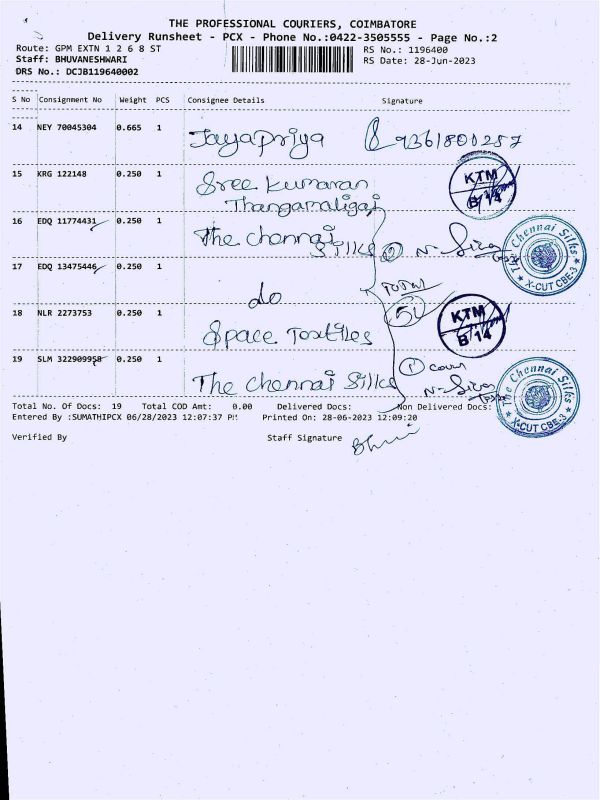 THE PROFESSIONAL COURIERS, COIMBATORE
Delivery Runsheet - PCX - Phone No.:0422-3505555 - Page No.:2
Route: GPM EXTN 1 2 6 8 ST
RS No.: 1196400
Staff: BHUVANESHWARI
RS Date: 28-Jun-2023
DRS No.: DCJB119640002
S No Consignment No Weight PCS Consignee Details Signature
14 NEY 70045304 0.665 1 Jayapriya 9361800257
15 KRG 122148 0.250 1 Sree Kumaran
Thangamaligai
KTM
B 14
16 EDQ 11774431 0.250 1 The Chennai
Silks
The Chennai Silks
X-CUT CBE-3
17 EDQ 13475446 0.250 1 do
Total
18 NLR 2273753 0.250 1 Space Textiles
KTM
B 14
19 SLM 322909958 0.250 1 The Chennai Silks
1 Cover
The Chennai Silks
X-CUT CBE-3
Total No. Of Docs: 19 Total COD Amt: 0.00 Delivered Docs: Non Delivered Docs:
Entered By :SUMATHIPCX 06/28/2023 12:07:37 PM Printed On: 28-06-2023 12:09:20
Verified By Staff Signature